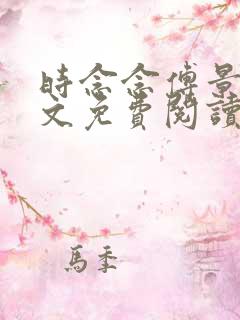 時念念傅景
文免費閱讀
馬季